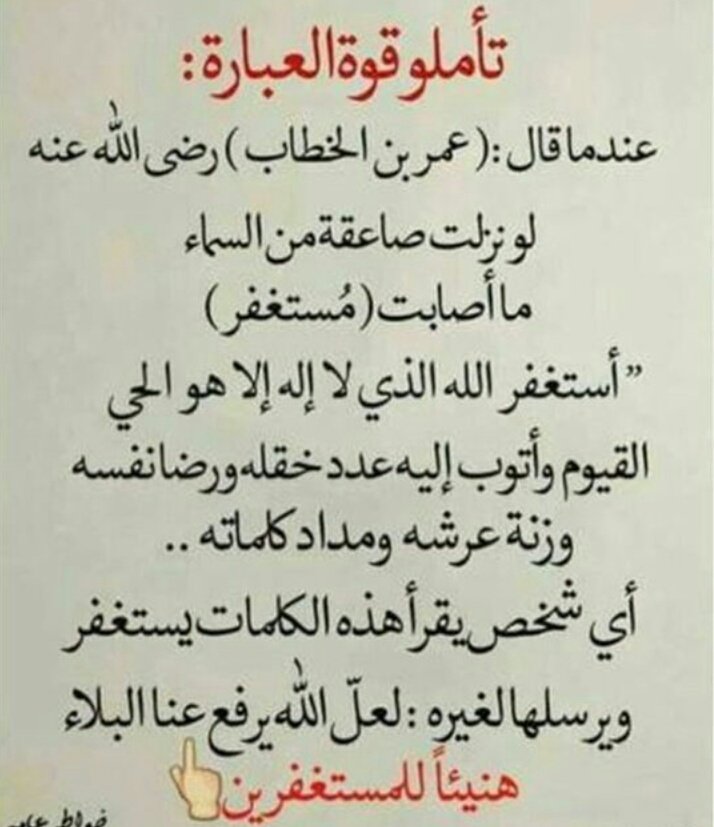 تأملو قوة العبارة:
عندما قال :( عمر بن الخطاب ) رضى الله عنه
لو نزلت صاعقة من السماء
ما أصابت ( مُستغفر )
” أستغفر الله الذي لا إله إلا هو الحي
القيوم وأتوب إليه عدد خقله ورضا نفسه
وزنة عرشه ومداد كلماته ..
أي شخص يقرأ هذه الكلمات يستغفر
ويرسلها لغيره : لعلّ الله يرفع عنا البلاء
هنيئاً للمستغفرين